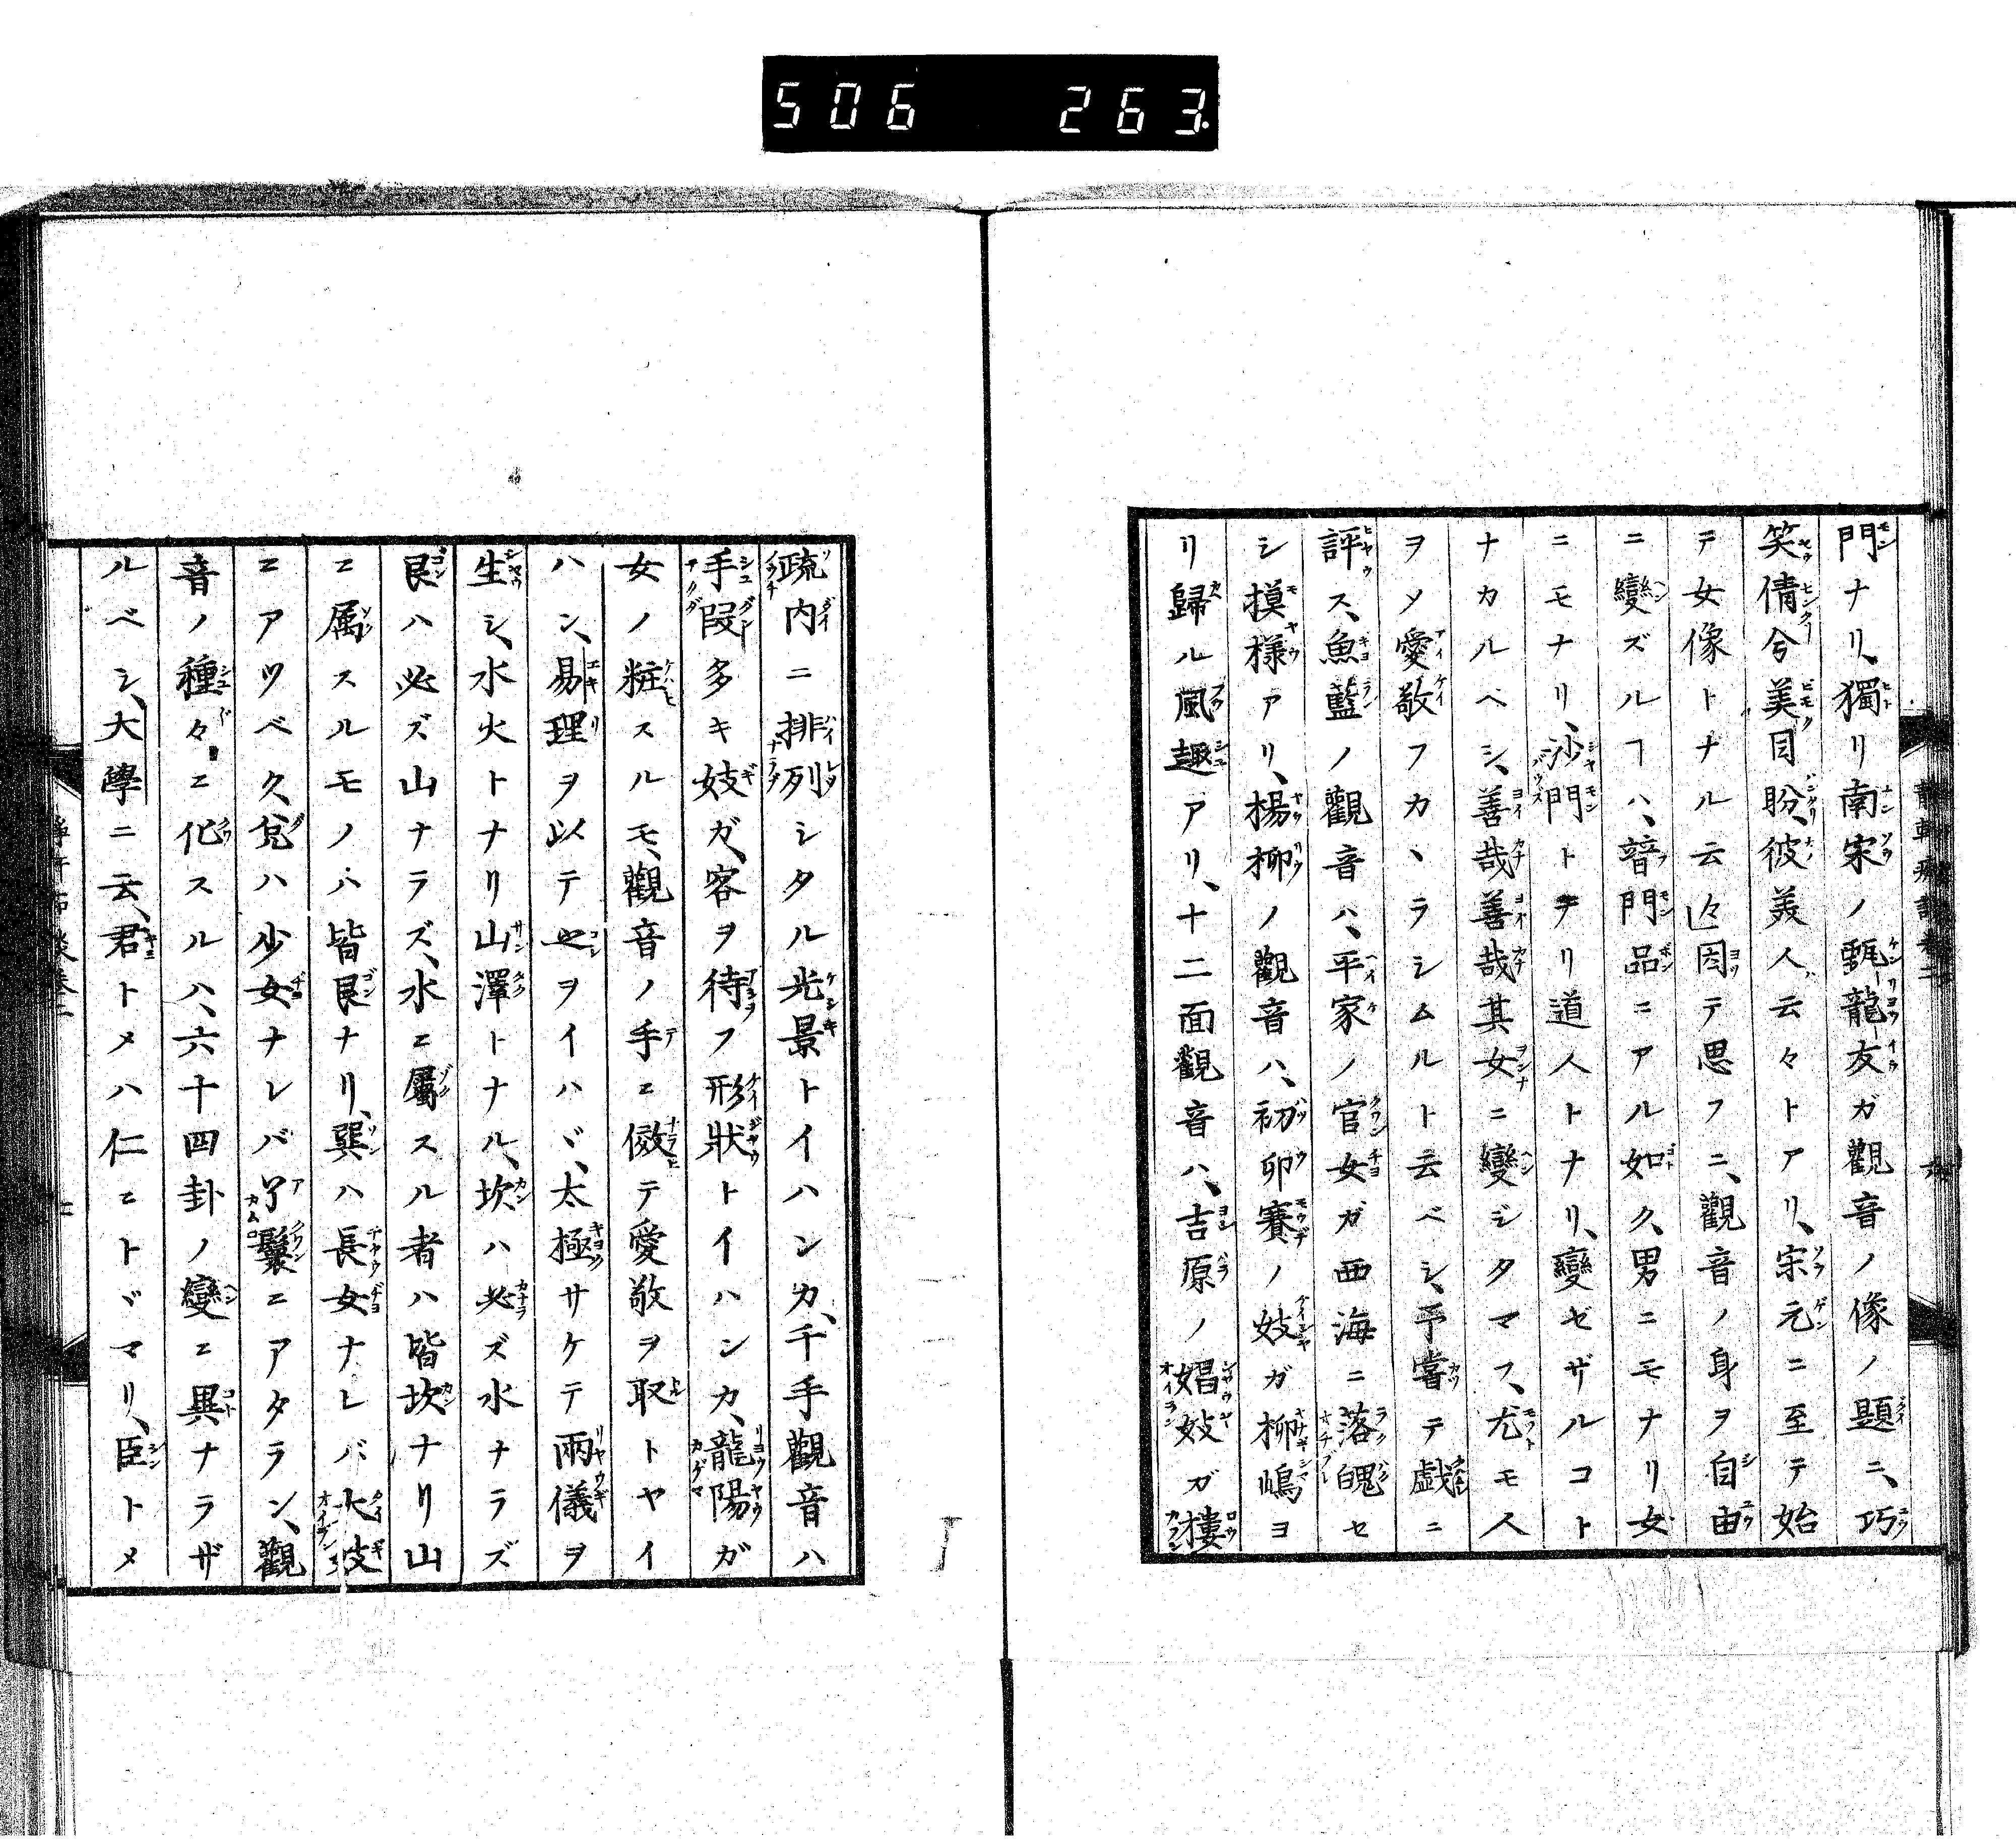 506 263.
門ナリ、獨リ南宋ノ甄龍友ガ觀音ノ像ノ題ニ、巧
笑倩兮美目盼、彼美人云々トアリ、宋元ニ至テ始
テ女像トナル云々因テ思フニ、觀音ノ身ヲ自由
ニ變ズルヿハ、普門品ニアル如ク、男ニモナリ女
ニモナリ、沙門トナリ道人トナリ、變ゼザルコト
ナカルベシ、善哉善哉其女ニ變ジタマフ、尤モ人
ヲメ愛敬フカヽラシムルト云ベシ、予嘗テ戯ニ
評ス、魚藍ノ觀音ハ、平家ノ官女ガ西海ニ落魄セ
シ摸樣アリ、楊柳ノ觀音ハ、初卯賽ノ妓ガ柳嶋ヨ
リ歸ル風趣アリ、十二面觀音ハ、吉原ノ娼妓ガ樓
疏内ニ排列シタル光景トイハンカ、千手觀音ハ
手段多キ妓ガ、客ヲ待フ形狀トイハンカ、龍陽ガ
女ノ粧スルモ、觀音ノ手ニ傚テ愛敬ヲ取トヤイ
ハン、易理ヲ以テ之ヲイハヾ、太極サケテ兩儀ヲ
生シ、水火トナリ山澤トナル、坎ハ必ズ水ナラズ
艮ハ必ズ山ナラズ、水ニ屬スル者ハ皆坎ナリ山
ニ属スルモノハ皆艮ナリ、巽ハ長女ナレバ大妓
ニアツベク、兌ハ少女ナレバ丫鬟ニアタラン、觀
音ノ種々ニ化スルハ、六十四卦ノ變ニ異ナラザ
ルベシ、大學ニ云、君トメハ仁ニトヾマリ、臣トメ